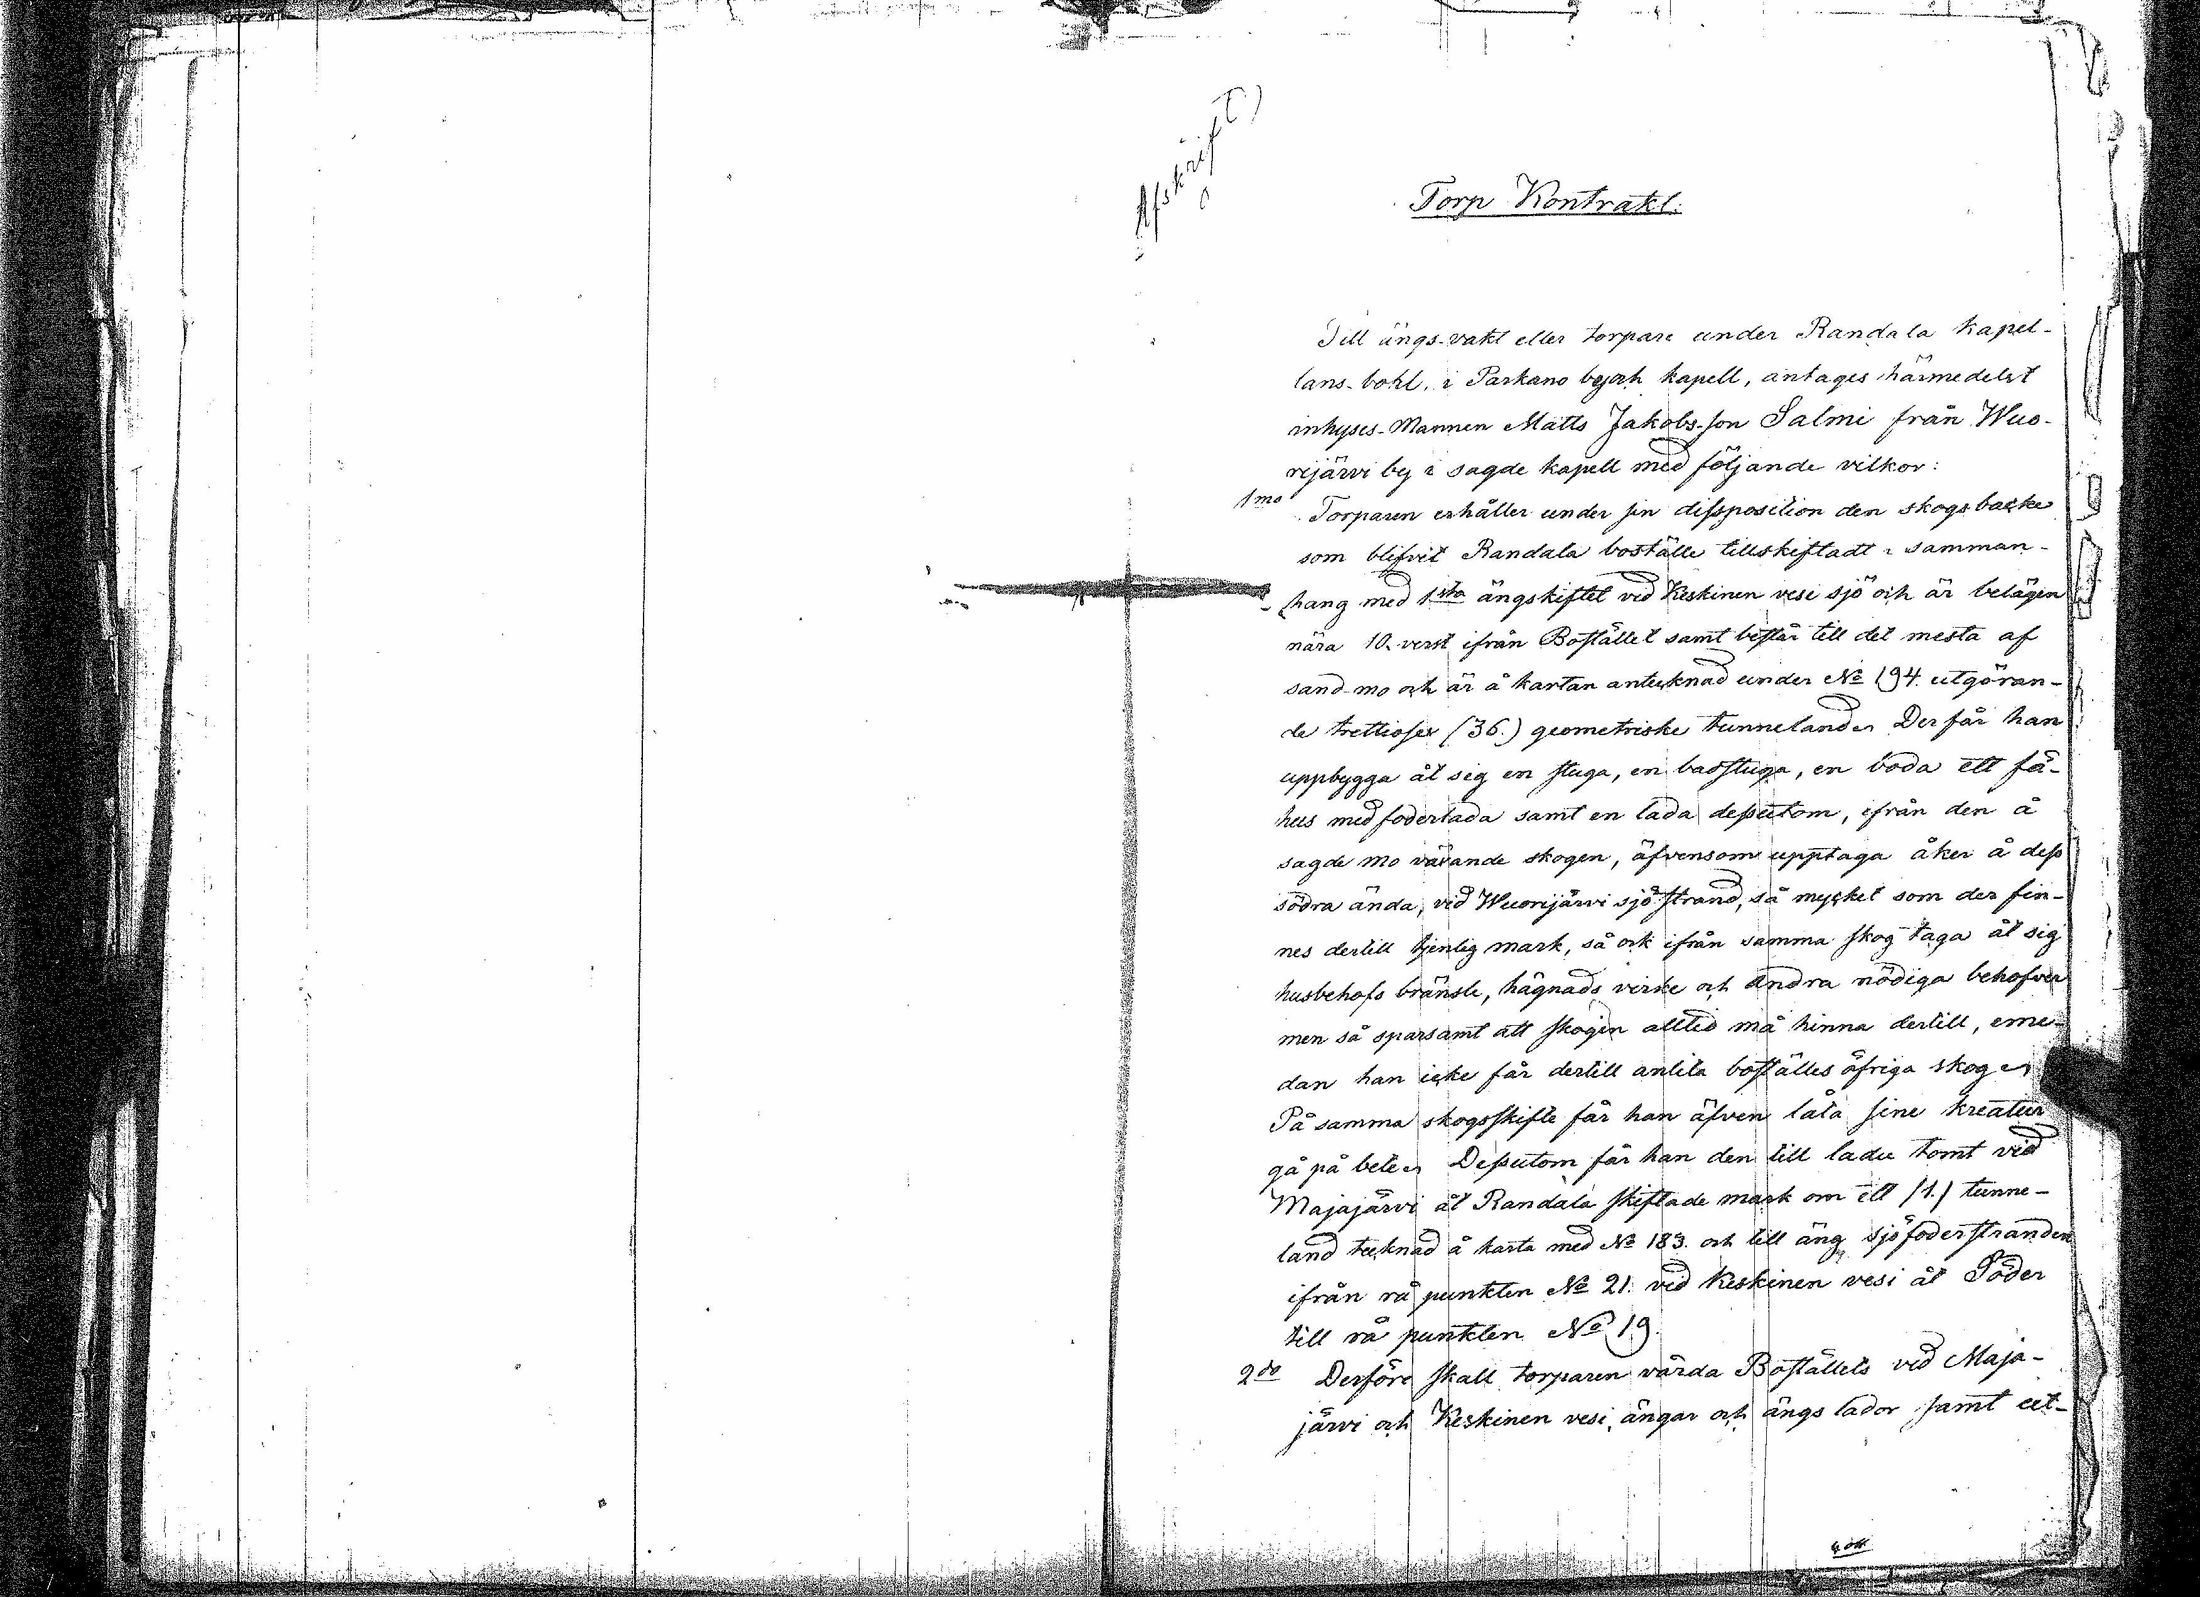 Afskrift)
Torp Kontrakt:
Till ängs-vakt eller torpare under Randala kapel-
lans-bohl, i Parkano by och kapell, antages härmedelst
inhyses-Mannen Matts Jakobs-son Salmi från Wuo-
rijärvi by i sagde kapell med följande vilkor:
1mo Torparen erhåller under sin dissposition den skogsbacke
som blifvit Randala boställe tillskiftadt i samman-
hang med 1sta ängskiftet vid Keskinen vesi sjö och är belägen
nära 10. verst ifrån Bostället samt består till det mesta af
sand-mo och är å kartan antecknad under No 194. utgöran-
de trettiosex (36.) geometriske tunneland. Der får han
uppbygga åt sig en stuga, en badstuga, en boda ett fä-
hus med foderlada samt en lada dessutom, ifrån den å
sagde mo varande skogen, äfvensom upptaga åker å dess
södra ända, vid Wuorijärvi sjö strand, så mycket som der fin-
nes dertill tjenlig mark, så ock ifrån samma skog taga åt sig
husbehofs bränsle, hägnads virke och andra nödiga behofver
men så sparsamt att skogen alltid må hinna dertill, eme-
dan han icke får dertill anlita boställes öfriga skog.
På samma skogsskifte får han äfven låta sine kreatur
gå på bete. Dessutom får han den till ladu tomt vid
Majajärvi åt Randala skiftade mark om ett /1./ tunne-
land tecknad å karta med No 183. och till äng sjöfoderstranden
ifrån rå punkten No 21. vid Keskinen vesi åt Söder
till rå punkten No 19.
2do Derföre skall torparen vårda Boställets vid Maja-
järvi och Keskinen vesi ängar och ängs lador samt ut-